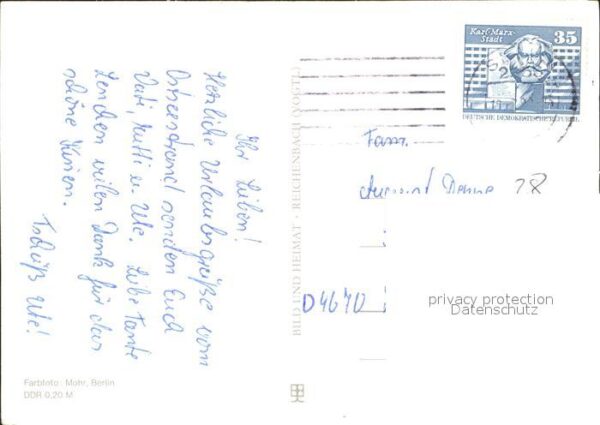 Ihr Lieben!
Herzliche Urlaubsgrüße vom
Ostseestrand senden Euch
Vati, Mutti u. Ute. Liebe Tante
Lenchen vielen Dank für das
schöne Kissen.
Tschüß Ute!
Farbfoto: Mohr, Berlin
DDR 0,20 M
BILD UND HEIMAT · REICHENBACH (VOGTL)
Karl-Marx-
Stadt
35
DEUTSCHE DEMOKRATISCHE REPUBLIK
Fam.
28
D4670
privacy protection
Datenschutz